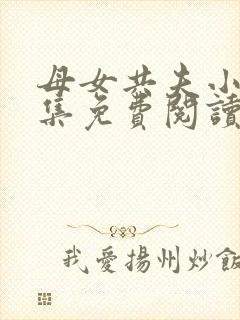 母女共夫小
集免費閱讀
我愛揚州炒飯